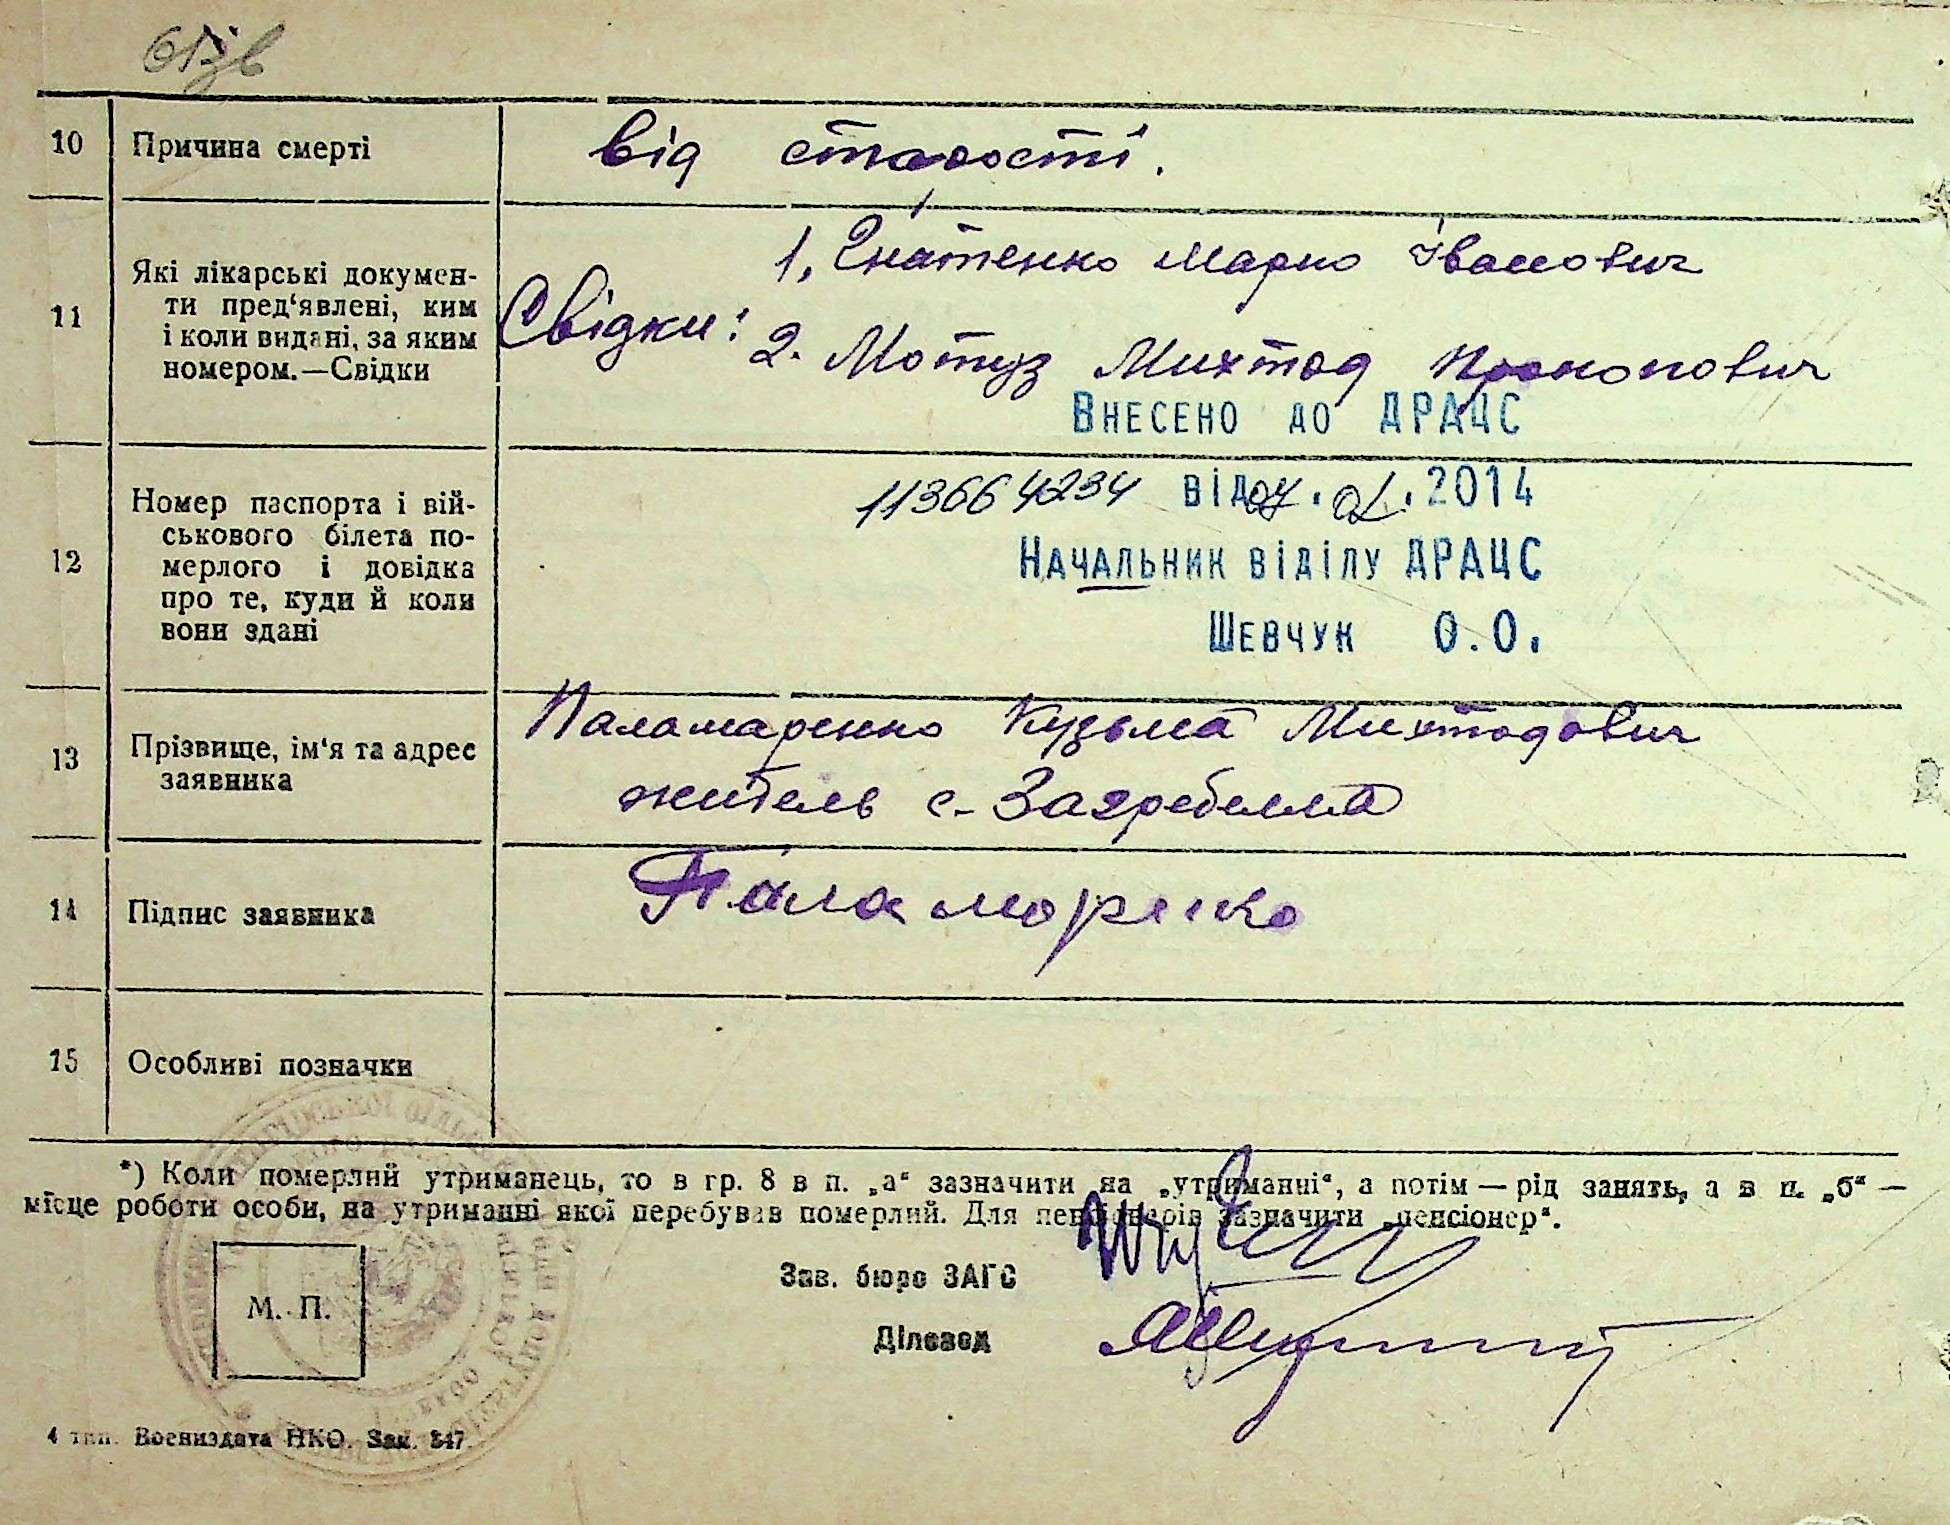 10 Причина смерті від старости.
11 Які лікарські докумен-
ти пред‘явлені, ким
і коли видані, за яким
номером.—Свідки
Свідки: 1, Гнатенко Марко Іванович
2. Мотуз Михтод Прокопович
Внесено до ДРАЦС
12 Номер паспорта і вій-
ськового білета по-
мерлого і довідка
про те, куди й коли
вони здані
113664234 від 2014
Начальник відділу ДРАЦС
Шевчук О.О.
13 Прізвище, ім‘я та адрес
заявника
Паламаренко Кузьма Михтодович
житель с. Загребелля
14 Підпис заявника Паламоренко
15 Особливі позначки
*) Коли померлий утриманець, то в гр. 8 в п. „а“ зазначити на „утриманні“, а потім — рід занять, а в п. „б“ —
місце роботи особи, на утриманні якої перебував померлий. Для пенсіонерів зазначити „пенсіонер“.
Зав. бюро ЗАГС
М. П.
Діловод
4 тип. Воениздата НКО. Зак. 347.